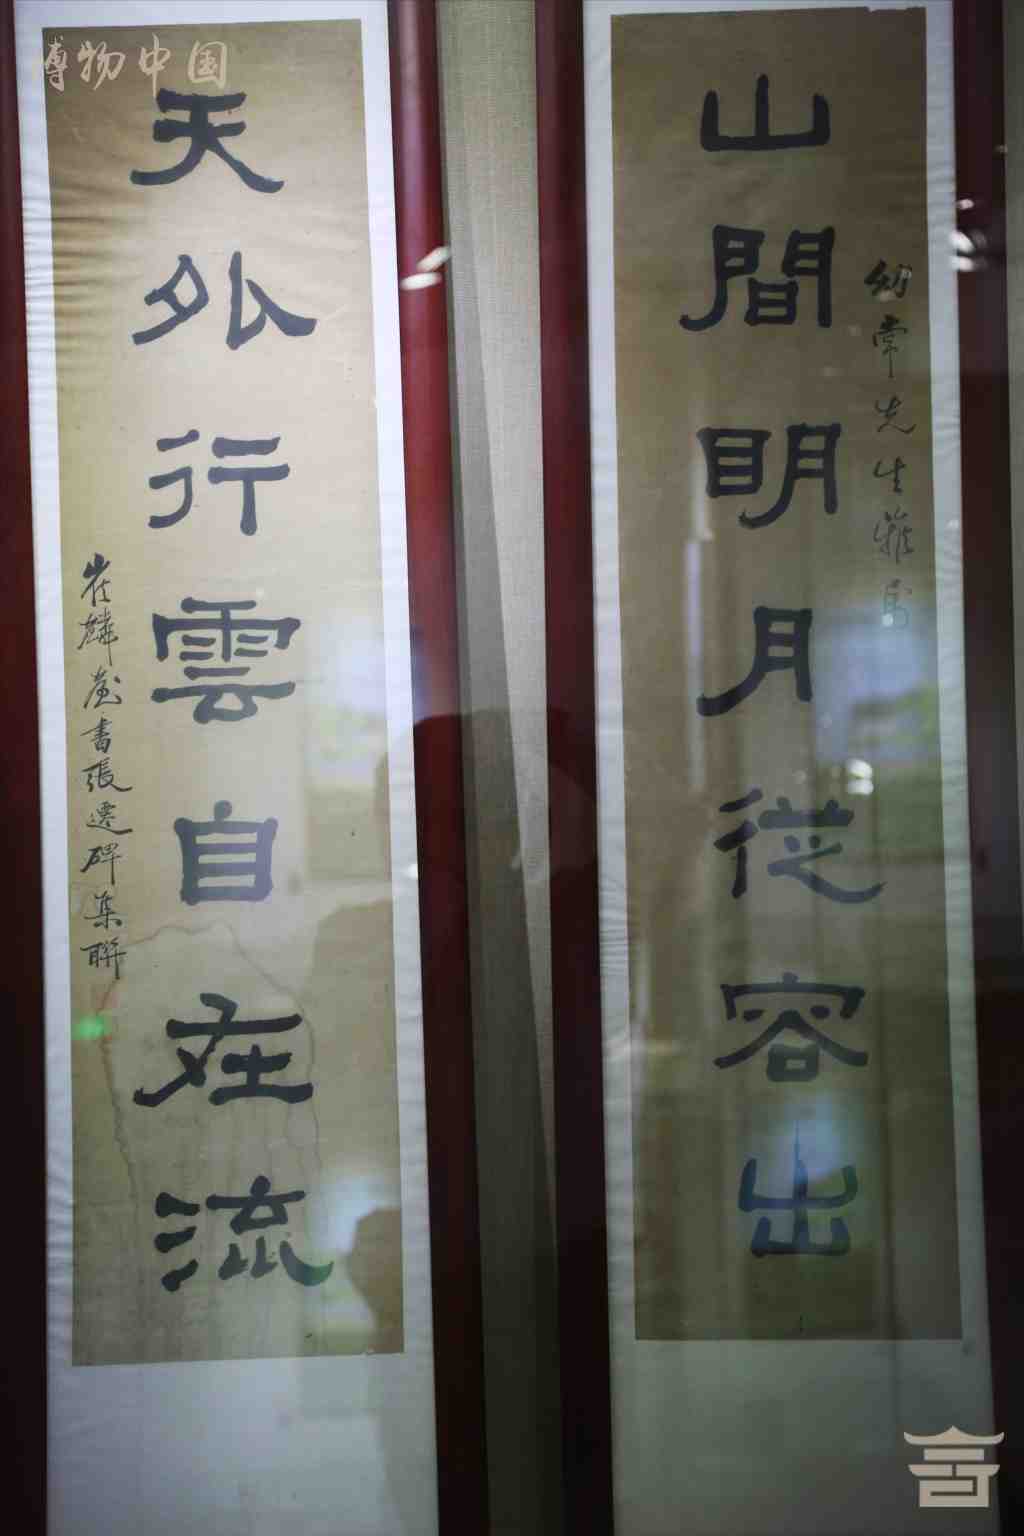 博物中国
山間明月從容出
幼常先生雅屬
天外行雲自在流
崔麟臺書張遷碑集聯